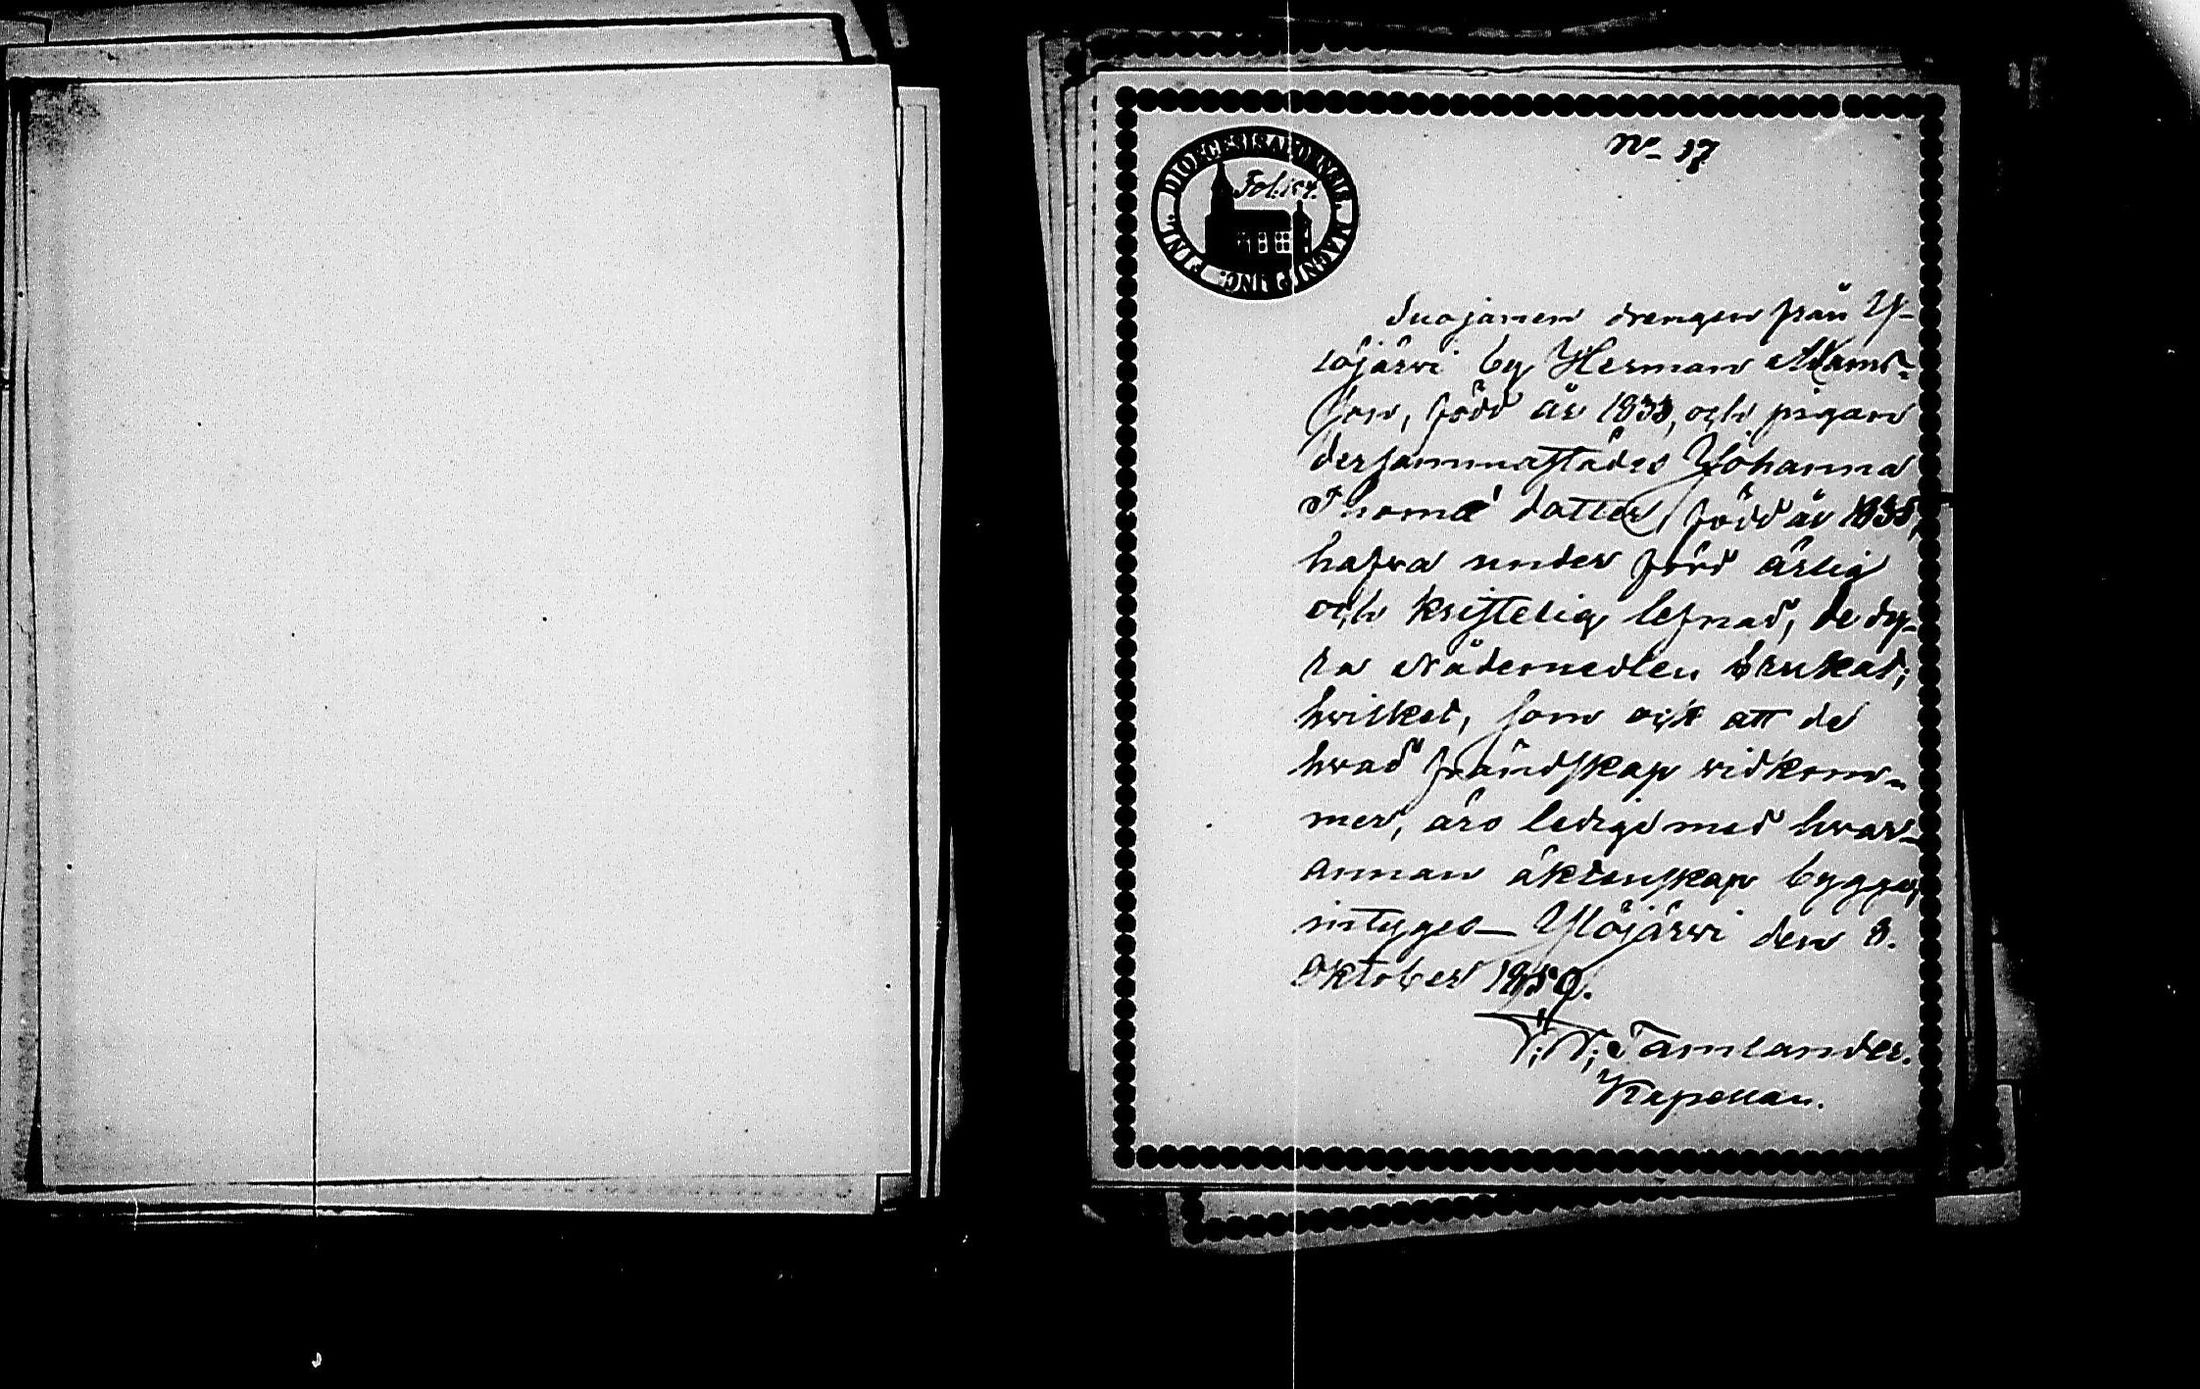 No 17
DIOECESIS ABOENSIS. MAGNI PRINC: FINL.
Fol: 154.
drengen från Y-
löjärvi by Herman Adams-
son, född år 1833, och pigan
dersammastädes Johanna
Thomæ dotter, född år 1835,
hafva under förd ärlig
och kristelig lefnad, de dy-
ra Nådemedlen brukat;
hvilket, som ock att de
hvad frändskap vidkom-
mer, äro ledige med hvar-
annan äktenskap bygga,
intygas Ylöjärvi den 8.
Oktober 1859.
Tamlander.
Kapellan.